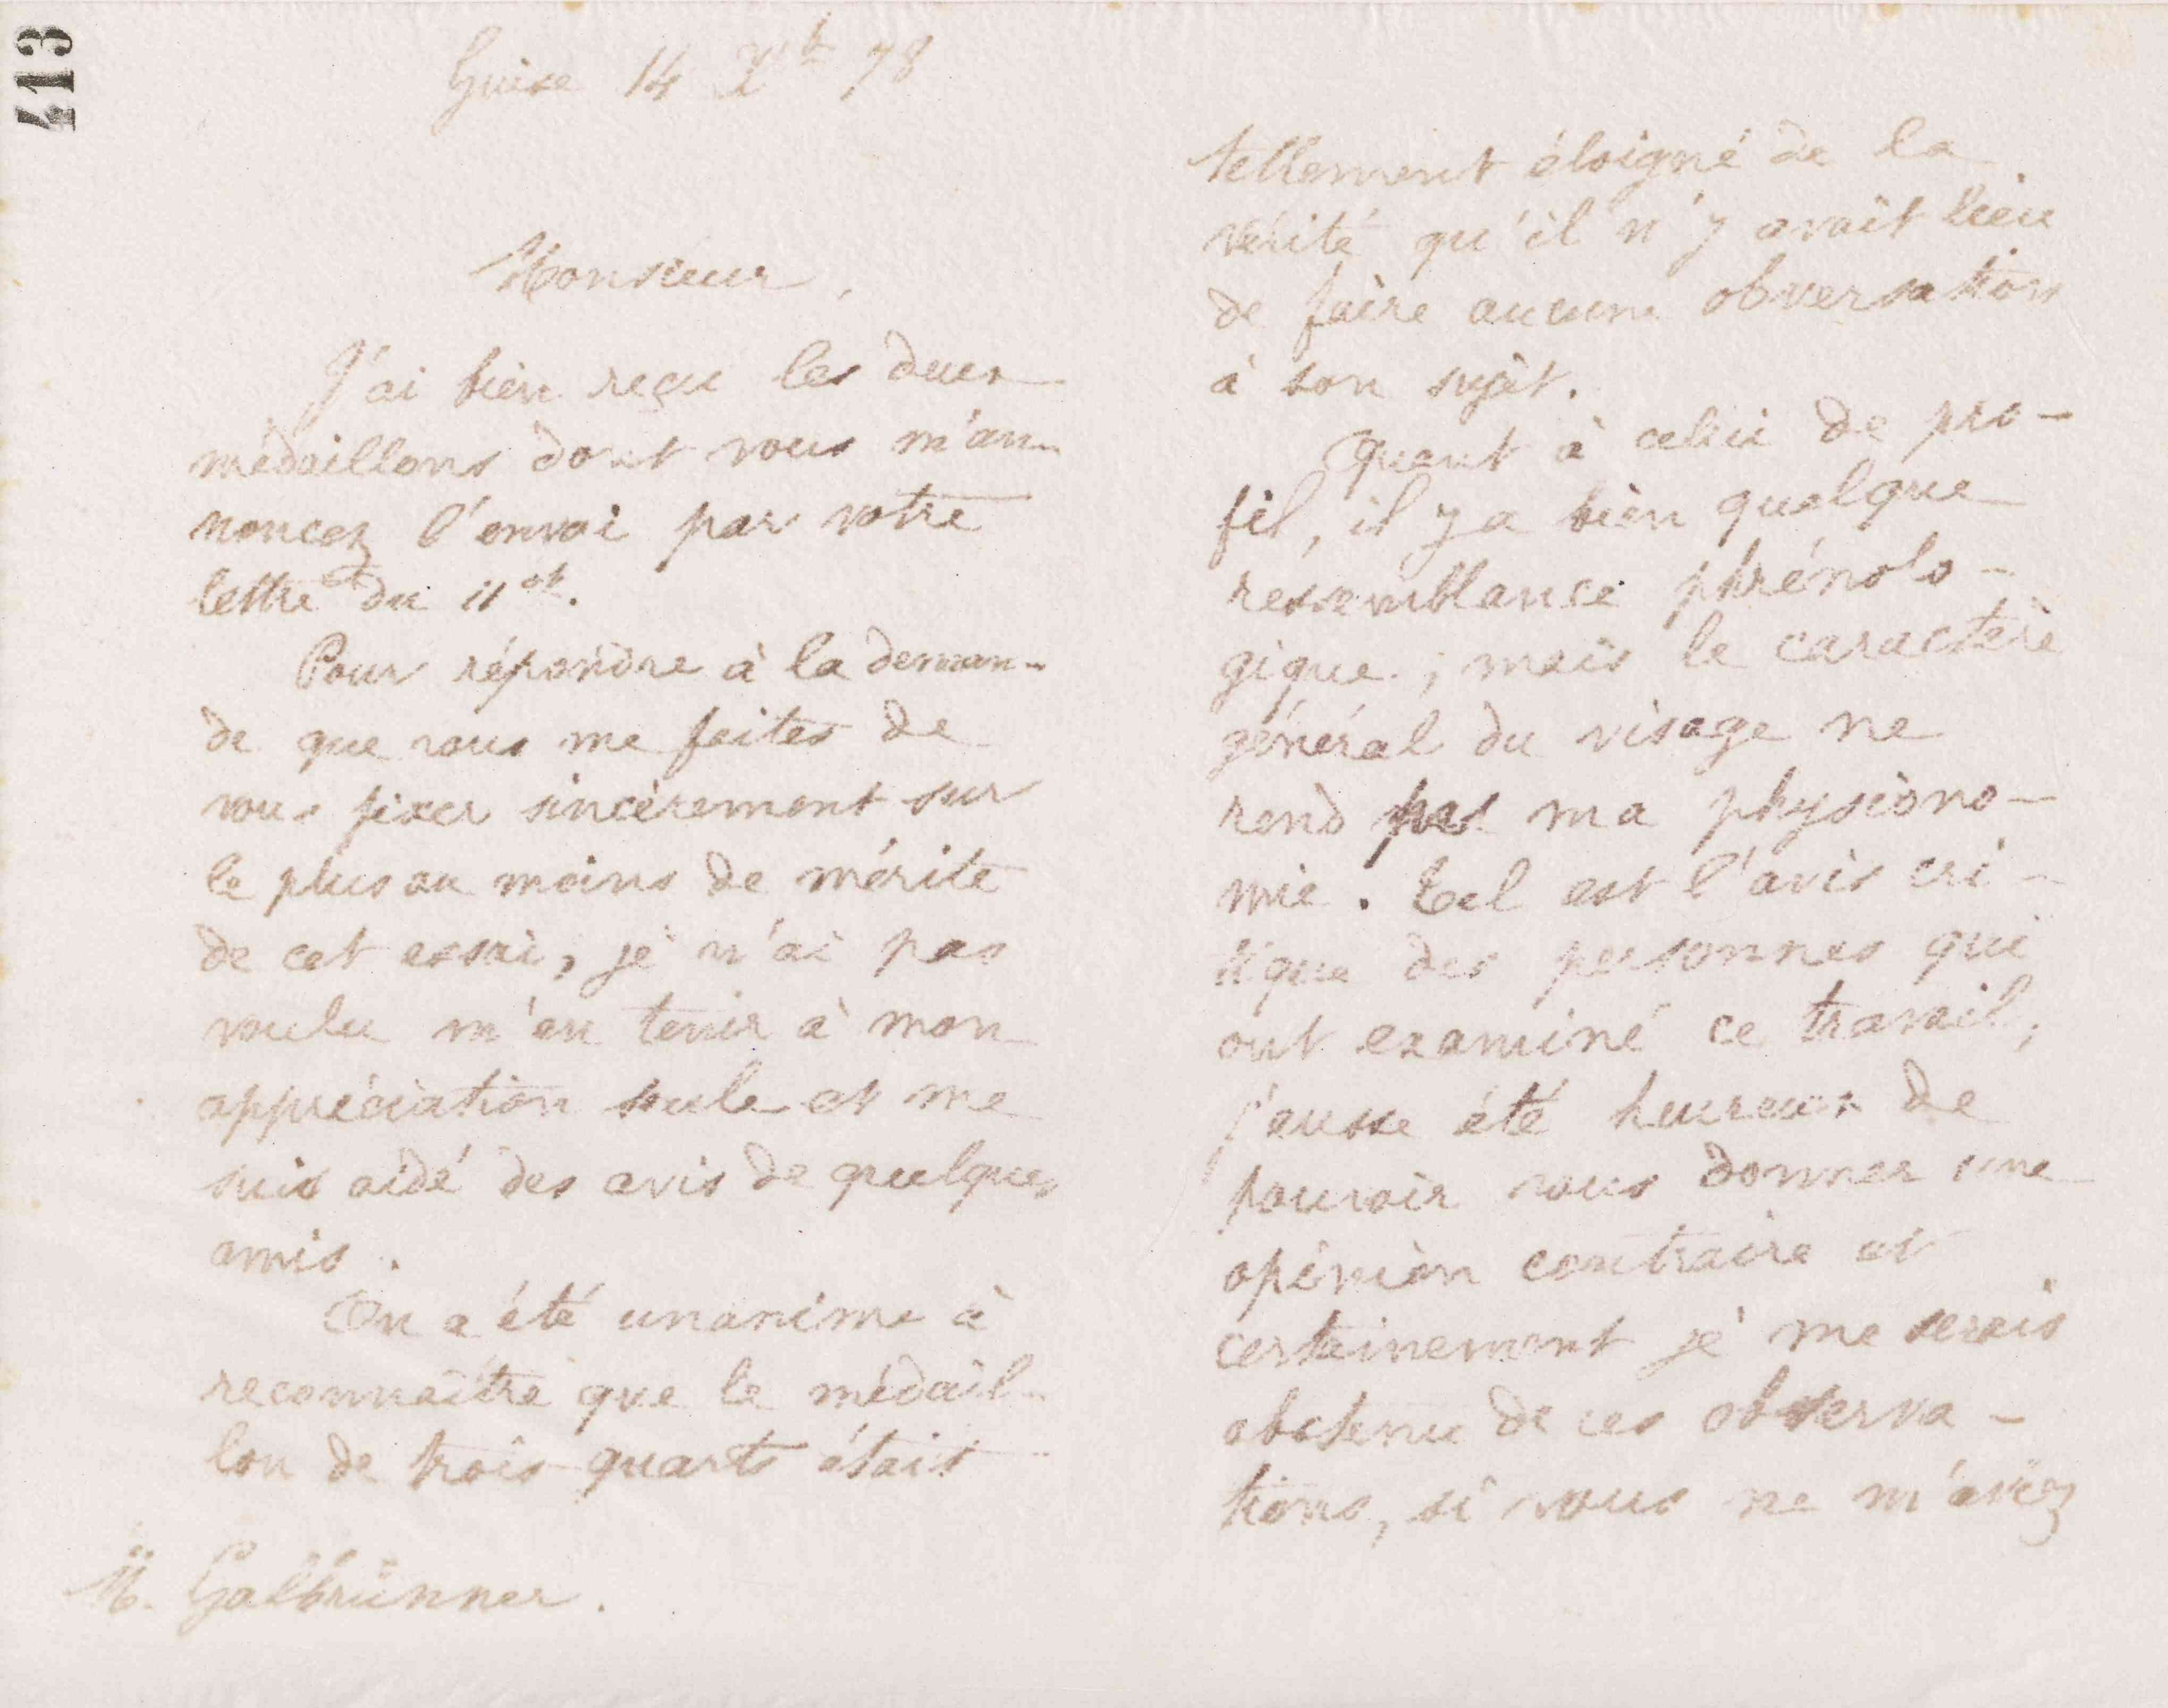 413
Guise 14 Xbre 78
Monsieur,
J'ai bien reçu les deux
médaillons dont vous m'an-
noncez l'envoi par votre
lettre du 11 ct.
Pour répondre à la deman-
de que vous me faites de
vous fixer sincèrement sur
le plus ou moins de mérite
de cet essai, je n'ai pas
voulu m'en tenir à mon
appréciation seule et me
suis aidé des avis de quelques
amis.
On a été unanime à
reconnaître que le médail-
lon de trois-quarts était
M. Galbrünner.
tellement éloigné de la
vérité qu'il n'y avait lieu
de faire aucune observation
à son sujet.
Quant à celui de pro-
fil, il y a bien quelque
ressemblance phrénolo-
gique ; mais le caractère
général du visage ne
rend pas ma physiono-
mie. Tel est l'avis cri-
tique des personnes qui
ont examiné ce travail,
j'eusse été heureux de
pouvoir vous donner une
opinion contraire et
certainement je me serais
abstenu de ces observa-
tions, si vous ne m'aviez